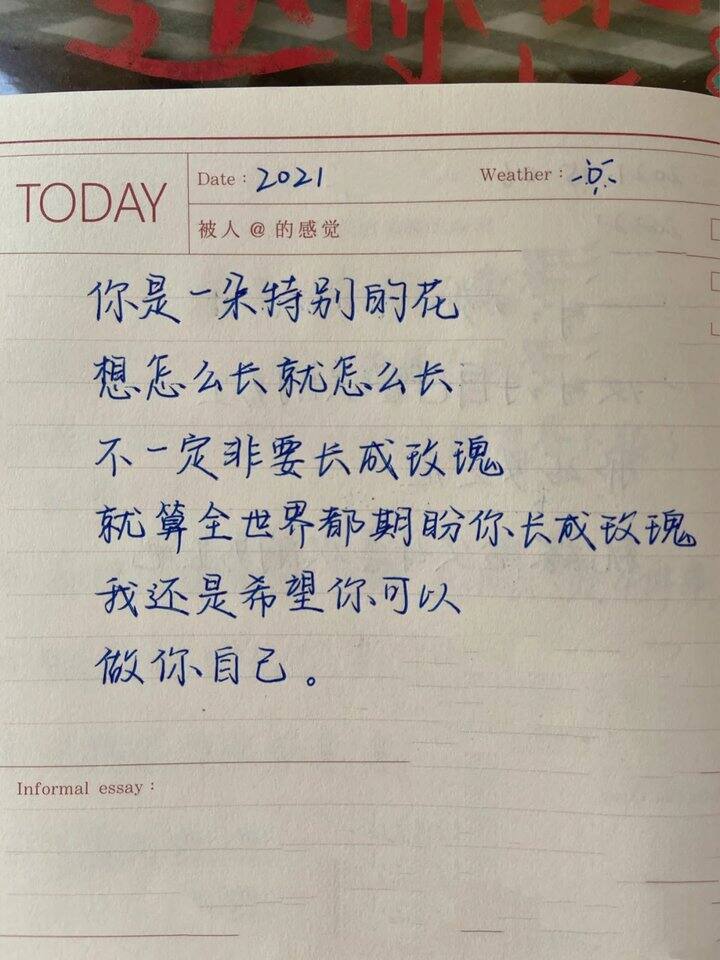 TODAY
Date：2021
Weather：
被人@的感觉
你是一朵特别的花
想怎么长就怎么长
不一定非要长成玫瑰
就算全世界都期盼你长成玫瑰
我还是希望你可以
做你自己。
Informal essay：